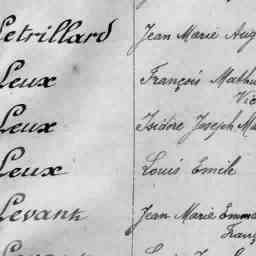 Letrillard Jean Marie Aug
Leux François Mathu
Vic
Leux Isidore Joseph Ma
Leux Louis Emile
Levank Jean Marie Emma
Franç